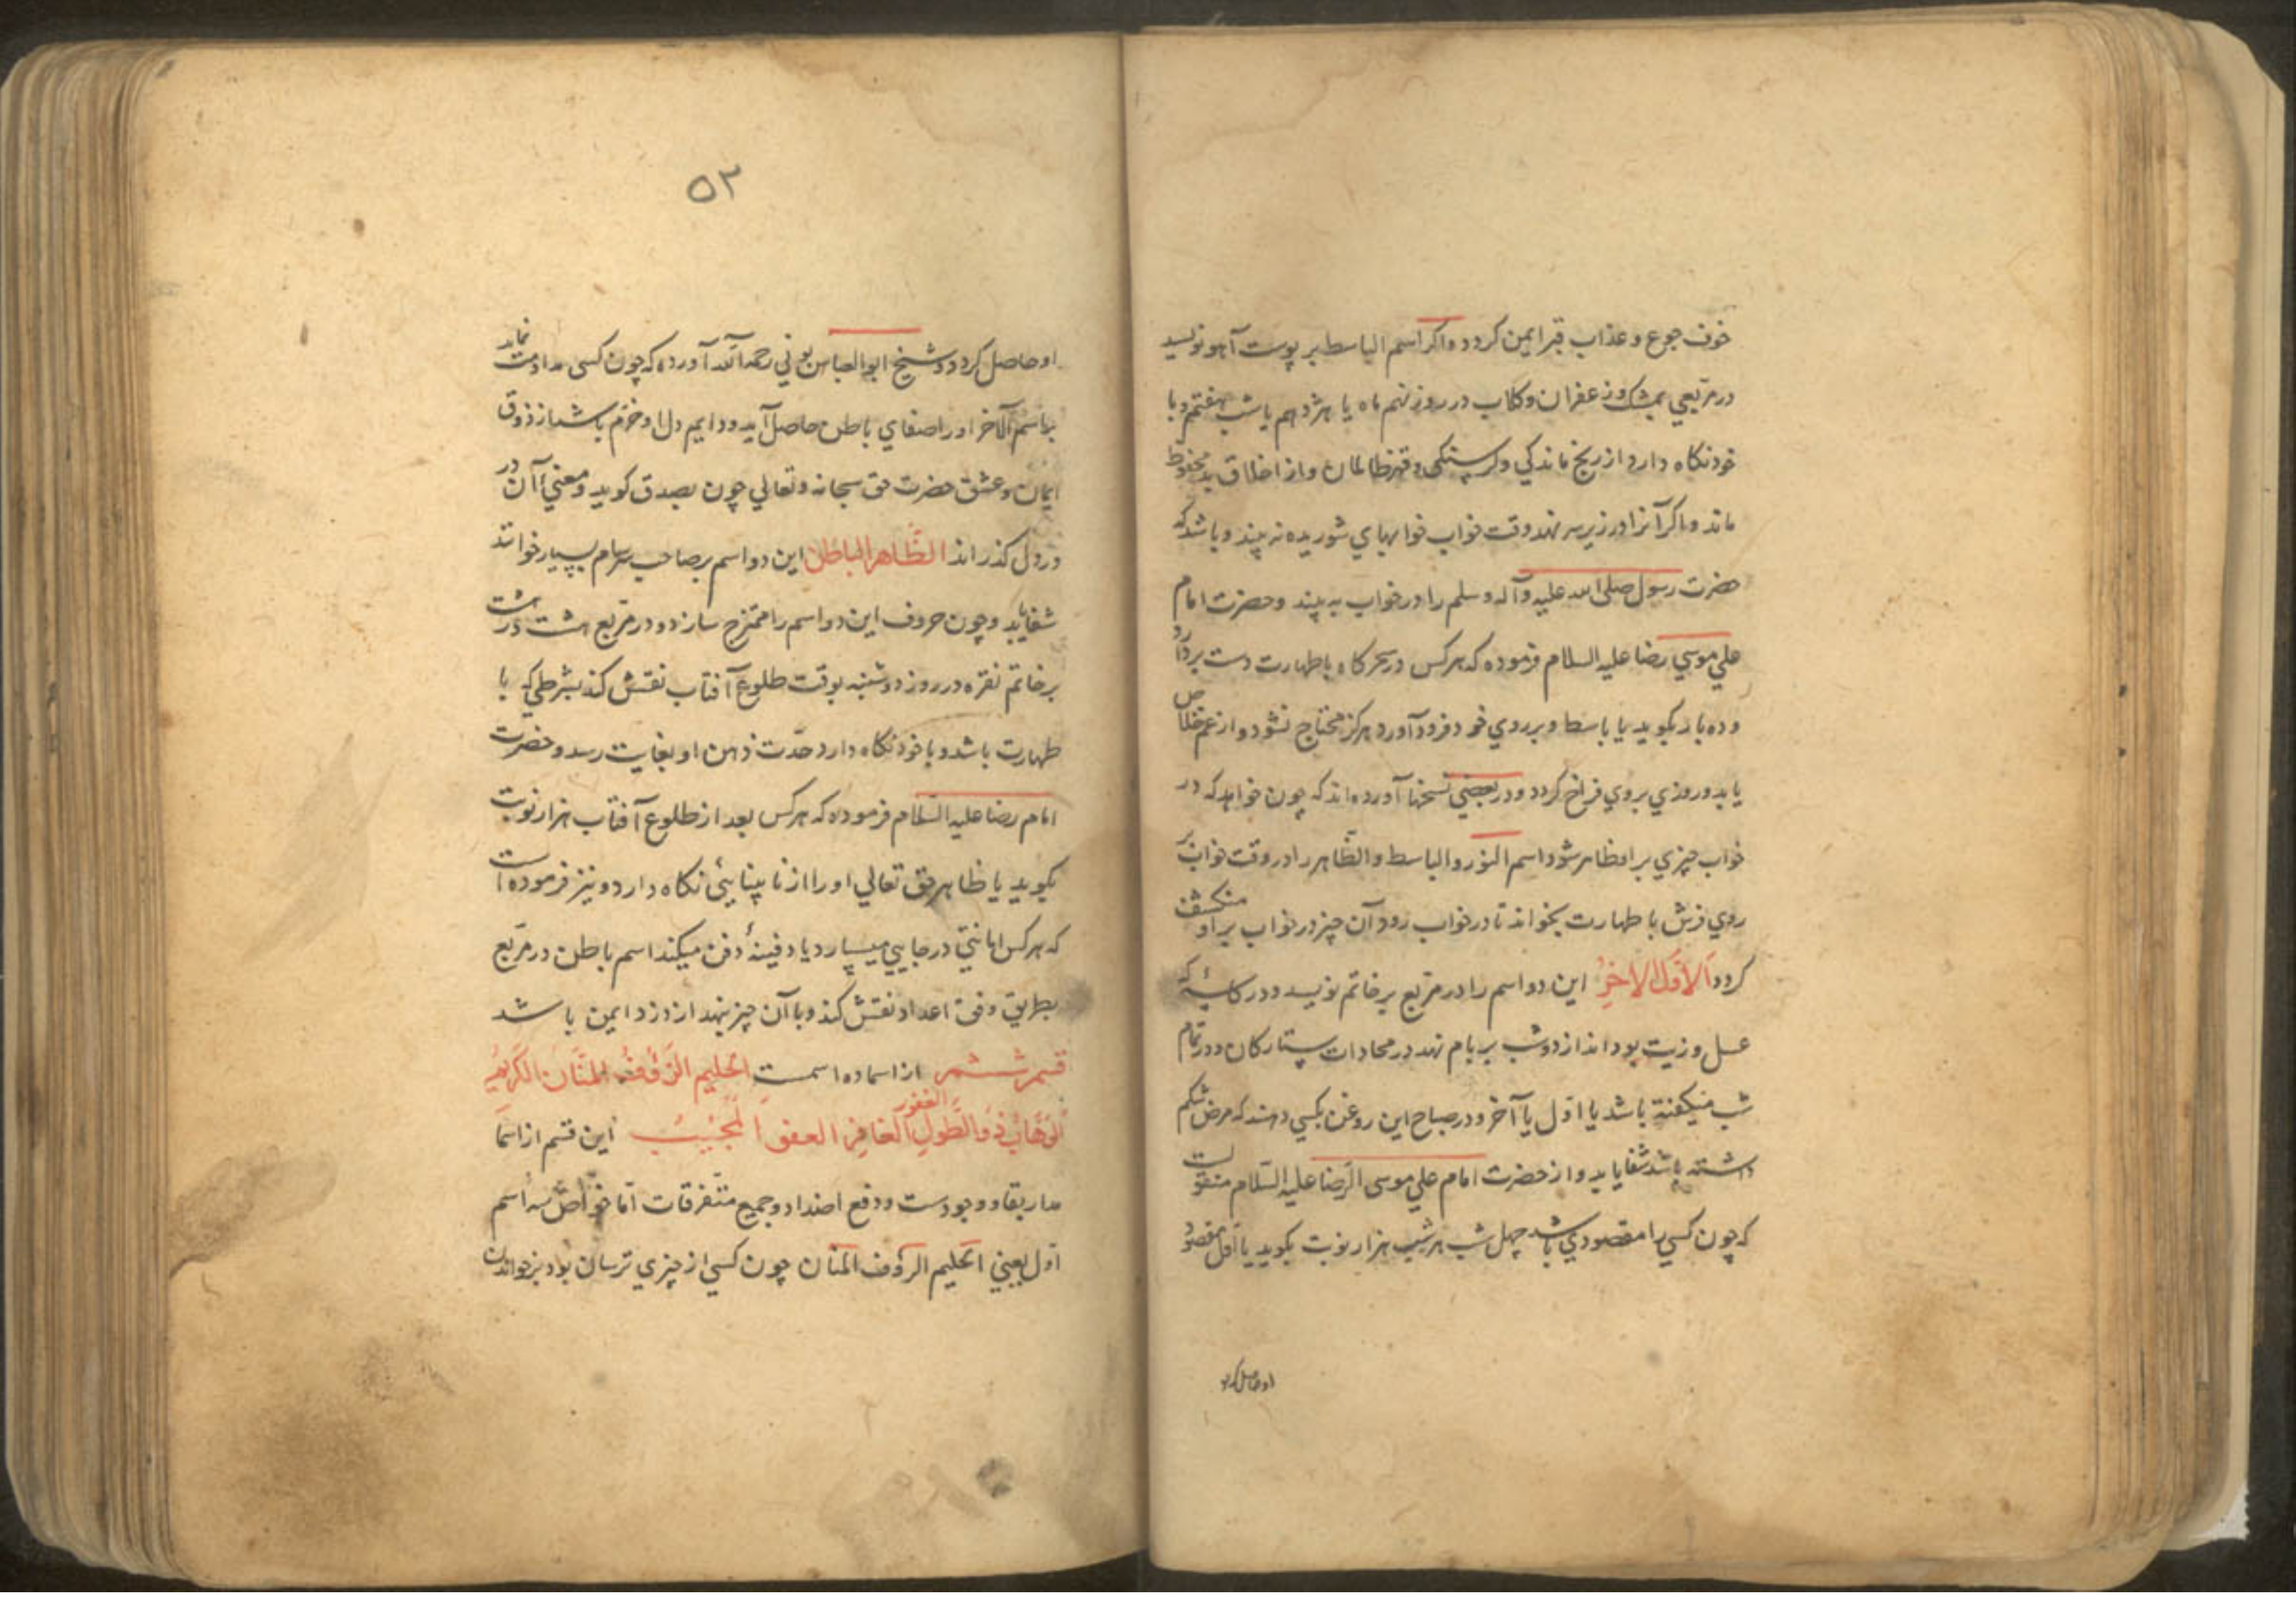 خوف جوع و عذاب قبر ایمن کردد و اکر اسم الباسط بر پوست آهو نویسد
در مربعی بمشک و زعفران و کلاب در روز نهم ماه یا هژدهم یا شب هفتم و با
خود نکاه دارد از رنج ماندکی و کرسنکی و قهر ظالمان و از اخلاق بد محفوظ
ماند و اکر آنرا در زیر سر نهد وقت خواب خوابهای شوریده نه بیند و باشد که
حضرت رسول صلی الله علیه وآله وسلم را در خواب به بیند و حضرت امام
علی موسی رضا علیه السلام فرموده که هرکس در سحرکاه با طهارت دست بردارد
و ده بار بکوید یا باسط و بر روی خود فرود آورد هرکز محتاج نشود و از غم خلاص
یابد و روزی بروی فراخ کردد و در بعضی نسخها آورده اند که چون خواهد که در
خواب چیزی بر او ظاهر شود اسم النور و الباسط و الظاهر را در وقت خواب بر
روی فرش با طهارت بخواند تا در خواب رود آن چیز در خواب بر او منکشف
کردد الاول الاخر این دو اسم را در مربع بر خاتم نویسد و در کاسهٔ که
عسل و زیت بود اندازد و شب بر بام نهد در محاذات ستارکان و در تمام
شب میکفته باشد یا اول یا آخر و در صباح این روغن بکسی دهند که مرض شکم
داشته باشد شفا یابد و از حضرت امام علی موسی الرضا علیه السلام منقولست
که چون کسی را مقصودی باشد چهل شب هر شب هزار نوبت بکوید یا اول مقصود
او حاصل کردد
۵۲
او حاصل کردد و شیخ ابوالعباس بونی رحمه الله آورده که چون کسی مداومت نماید
باسم الآخر او را صفای باطن حاصل آید و دایم دل او خرم باشد از ذوق
ایمان و عشق حضرت حق سبحانه و تعالی چون بصدق کوید و معنی آن در
در دل کذراند الظاهر الباطن این دو اسم بر صاحب سرسام بسیار خوانند
شفا یابد و چون حروف این دو اسم را ممتزج سازد و در مربع هشت در هشت
بر خاتم نقره در روز دوشنبه بوقت طلوع آفتاب نقش کند بشرطی که با
طهارت باشد و با خود نکاه دارد حدت ذهن او بغایت رسد و حضرت
امام رضا علیه السلام فرموده که هرکس بعد از طلوع آفتاب هزار نوبت
بکوید یا ظاهر حق تعالی او را از نابینایی نکاه دارد و نیز فرموده است
که هرکس امانتی در جایی میسپارد یا دفینهٔ دفن میکند اسم باطن در مربع
بطریق وفق اعداد نقش کند و با آن چیز نهد از دزد ایمن باشد
قسم ششم از اسما ده اسمست الحلیم الرؤف المنان الکریم
الوهاب ذو الطول الغفور الغافر العفو المجیب این قسم از اسما
مدار بقا و وجودست و دفع اضداد و جمیع متفرقات اما خواص سه اسم
اول یعنی الحلیم الرؤف المنان چون کسی از چیزی ترسان بود بر خواندن